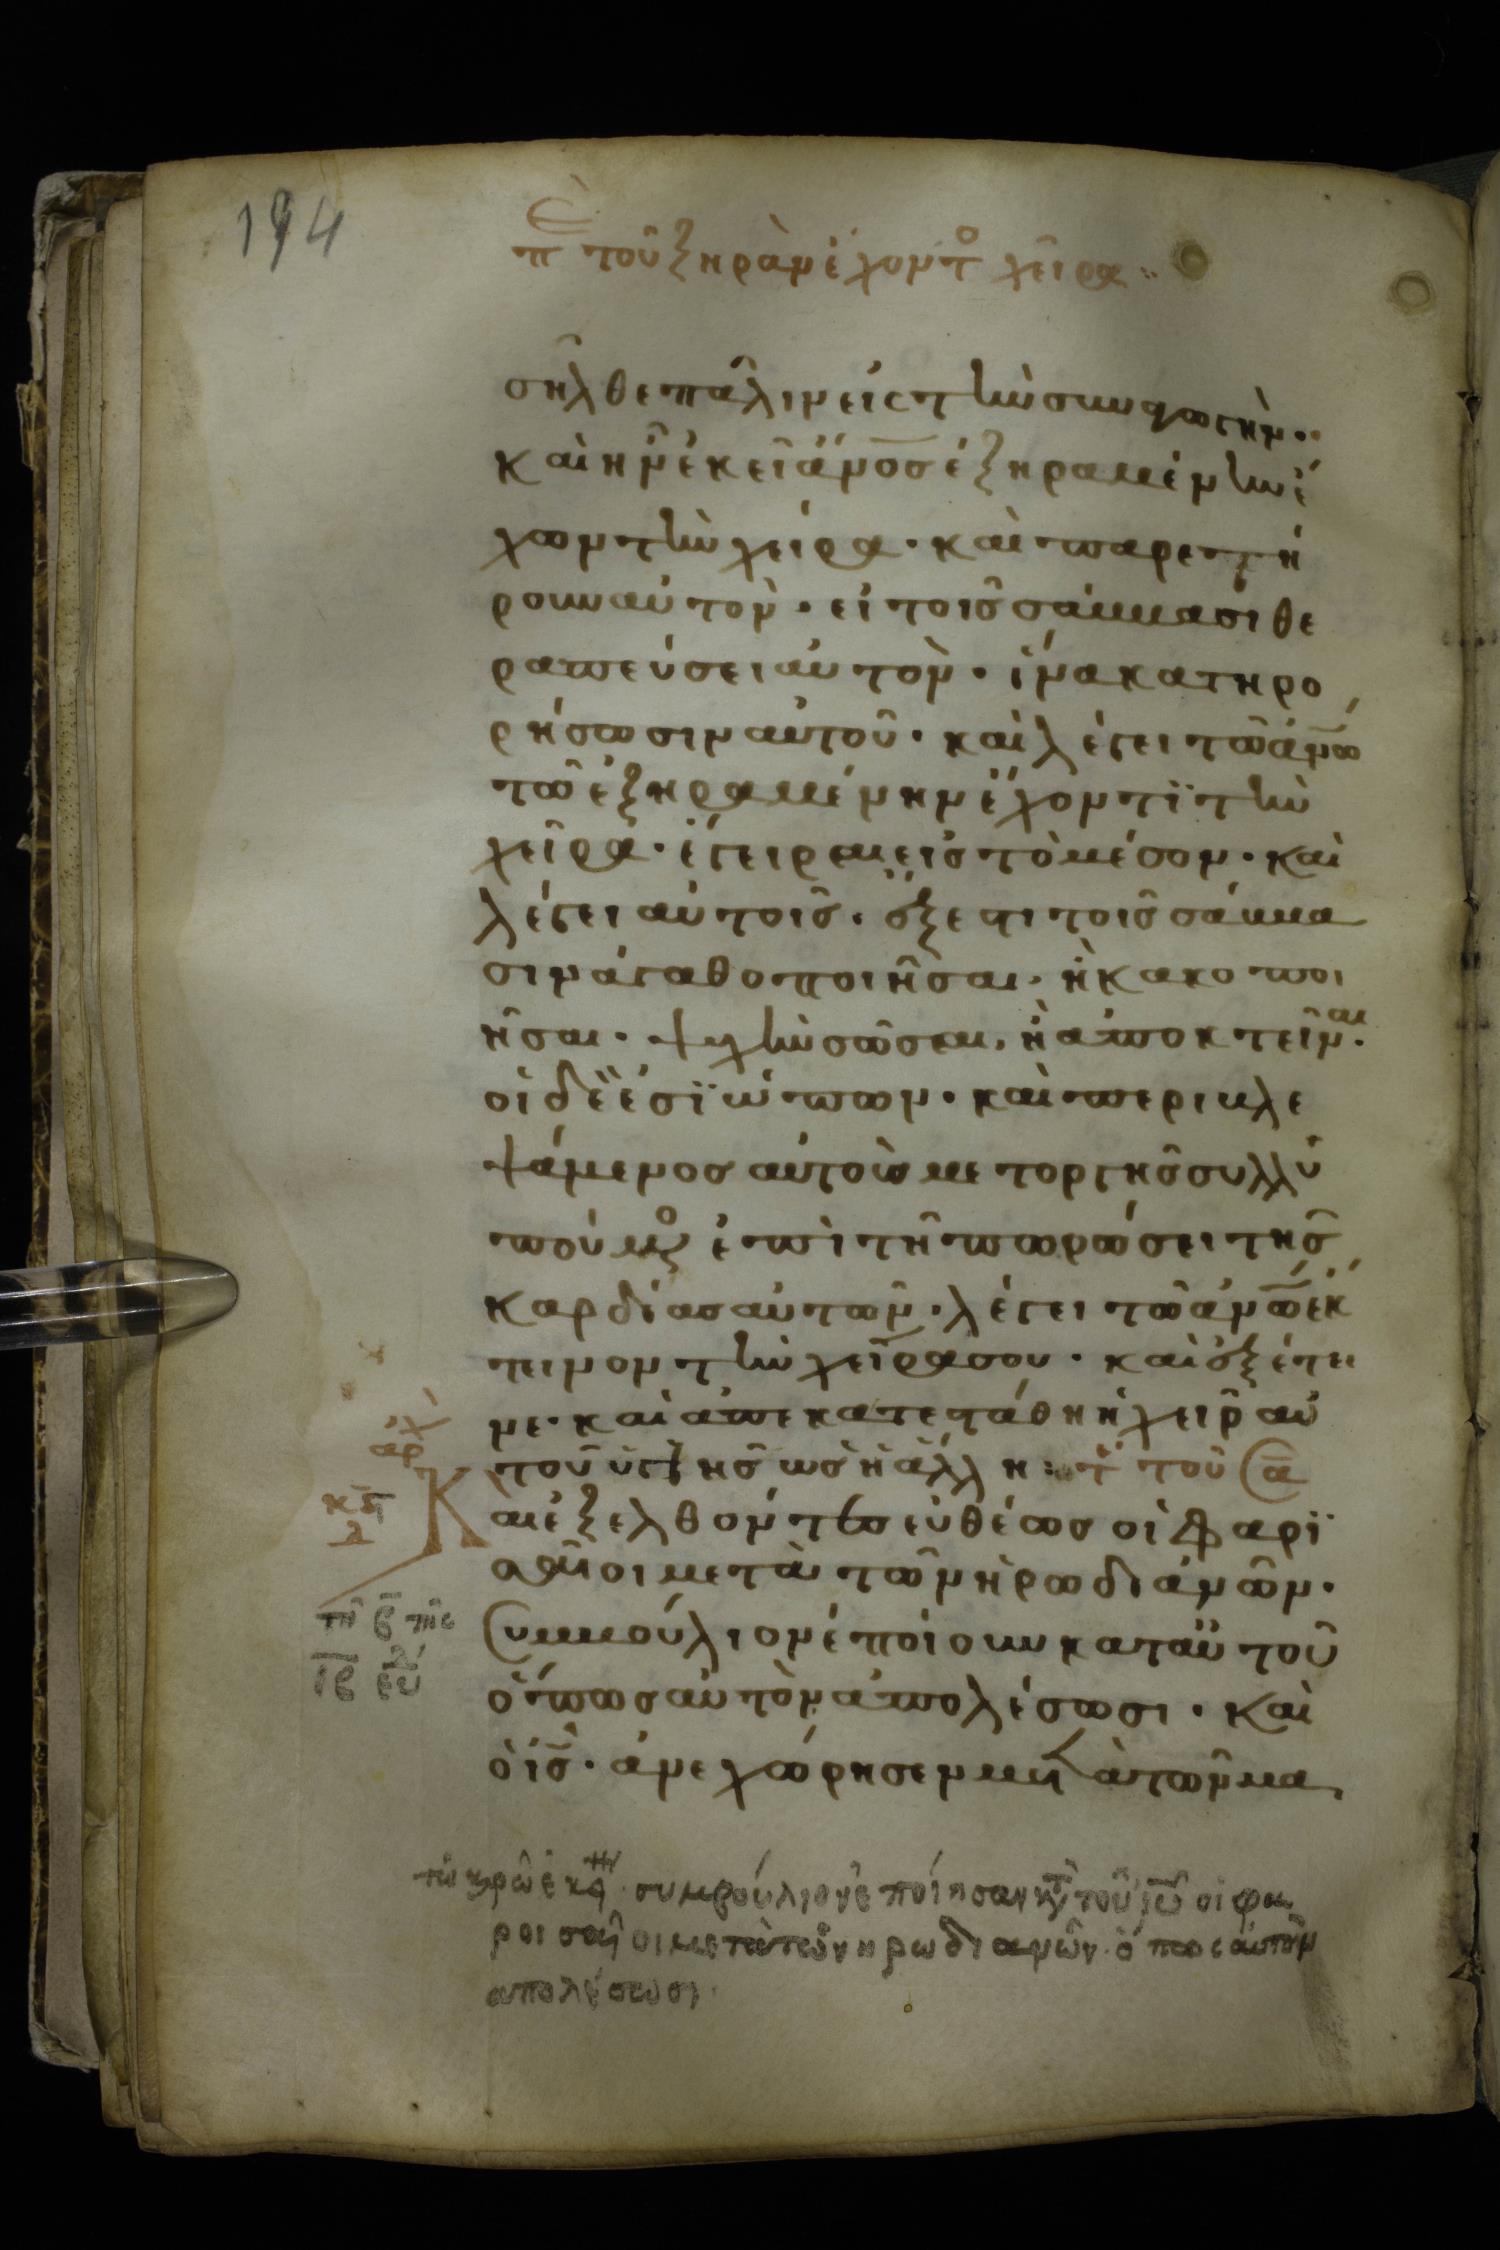 194
ε π τοῦ ξηρὰν ἔχοντο χεῖρα
σῆλθε πάλιν εἰς τὴν συναγωγὴν·
καὶ ἦν ἐκεῖ ἄνοσ ἐξηραμμένην ἔ
χων τὴν χείρα· καὶ παρετή
ρουν αὐτὸν· εἰ τοῖς σάββασι θε
ραπεύσει αὐτὸν· ἵνα κατηγο
ρήσωσιν αὐτοῦ· καὶ λέγει τῶ ἀνω
τῶ ἐξηραμμένην ἔχοντι τὴν
χεῖρα· ἔγειραι εἰς τὸ μέσον· καὶ
λέγει αὐτοῖς· ἔξεστι τοῖς σάββα
σιν ἀγαθοποιῆσαι, ἢ κακοποι
ῆσαι· ψυχὴν σῶσαι, ἢ ἀποκτεῖναι·
οἱ δὲ ἐσιώπων· καὶ περιβλε
ψάμενος αὐτοὺς μετ οργῆς συλλυ
πούμενος ἐπὶ τῆ πωρώσει τῆς
καρδίας αὐτῶν· λέγει τῶ ἀνω ἔκ
τεινον τὴν χεῖρα σου· καὶ ἐξέτει
νε· καὶ ἀπεκατεστάθη ἡ χεὶρ αὐ
τοῦ ὑγιὴς ὡς ἡ ἄλλη: τε τοῦ σα
αρχ
Και ἐξελθόντες εὐθέως οἱ φαρι
κς
λ
σαῖοι μετὰ τῶν ἡρωδιάνῶν·
τῆ β τῆς
συμβούλιον ἐποίουν κατ αὐτοῦ
ιβ εβδ
ὅπως αὐτὸν ἀπολέσωσι· καὶ
ὁ ις· ἀνεχώρησεν μετὰ τῶν μα
τῶ κρῶ ἐκ συμβούλιον ἐποίησαν κτ τοῦ ιυ οἱ φα
ρισαῖοι μετὰ τῶν ηρωδιανῶν ὅπως αὐτὸν
απολέσωσι·